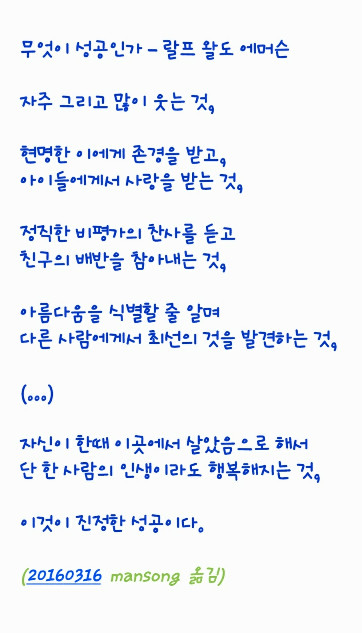 무엇이 성공인가 - 랄프 왈도 에머슨
자주 그리고 많이 웃는 것,
현명한 이에게 존경을 받고,
아이들에게서 사랑을 받는 것,
정직한 비평가의 찬사를 듣고
친구의 배반을 참아내는 것,
아름다움을 식별할 줄 알며
다른 사람에게서 최선의 것을 발견하는 것,
(...)
자신이 한때 이곳에서 살았음으로 해서
단 한 사람의 인생이라도 행복해지는 것,
이것이 진정한 성공이다.
(20160316 mansong 옮김)